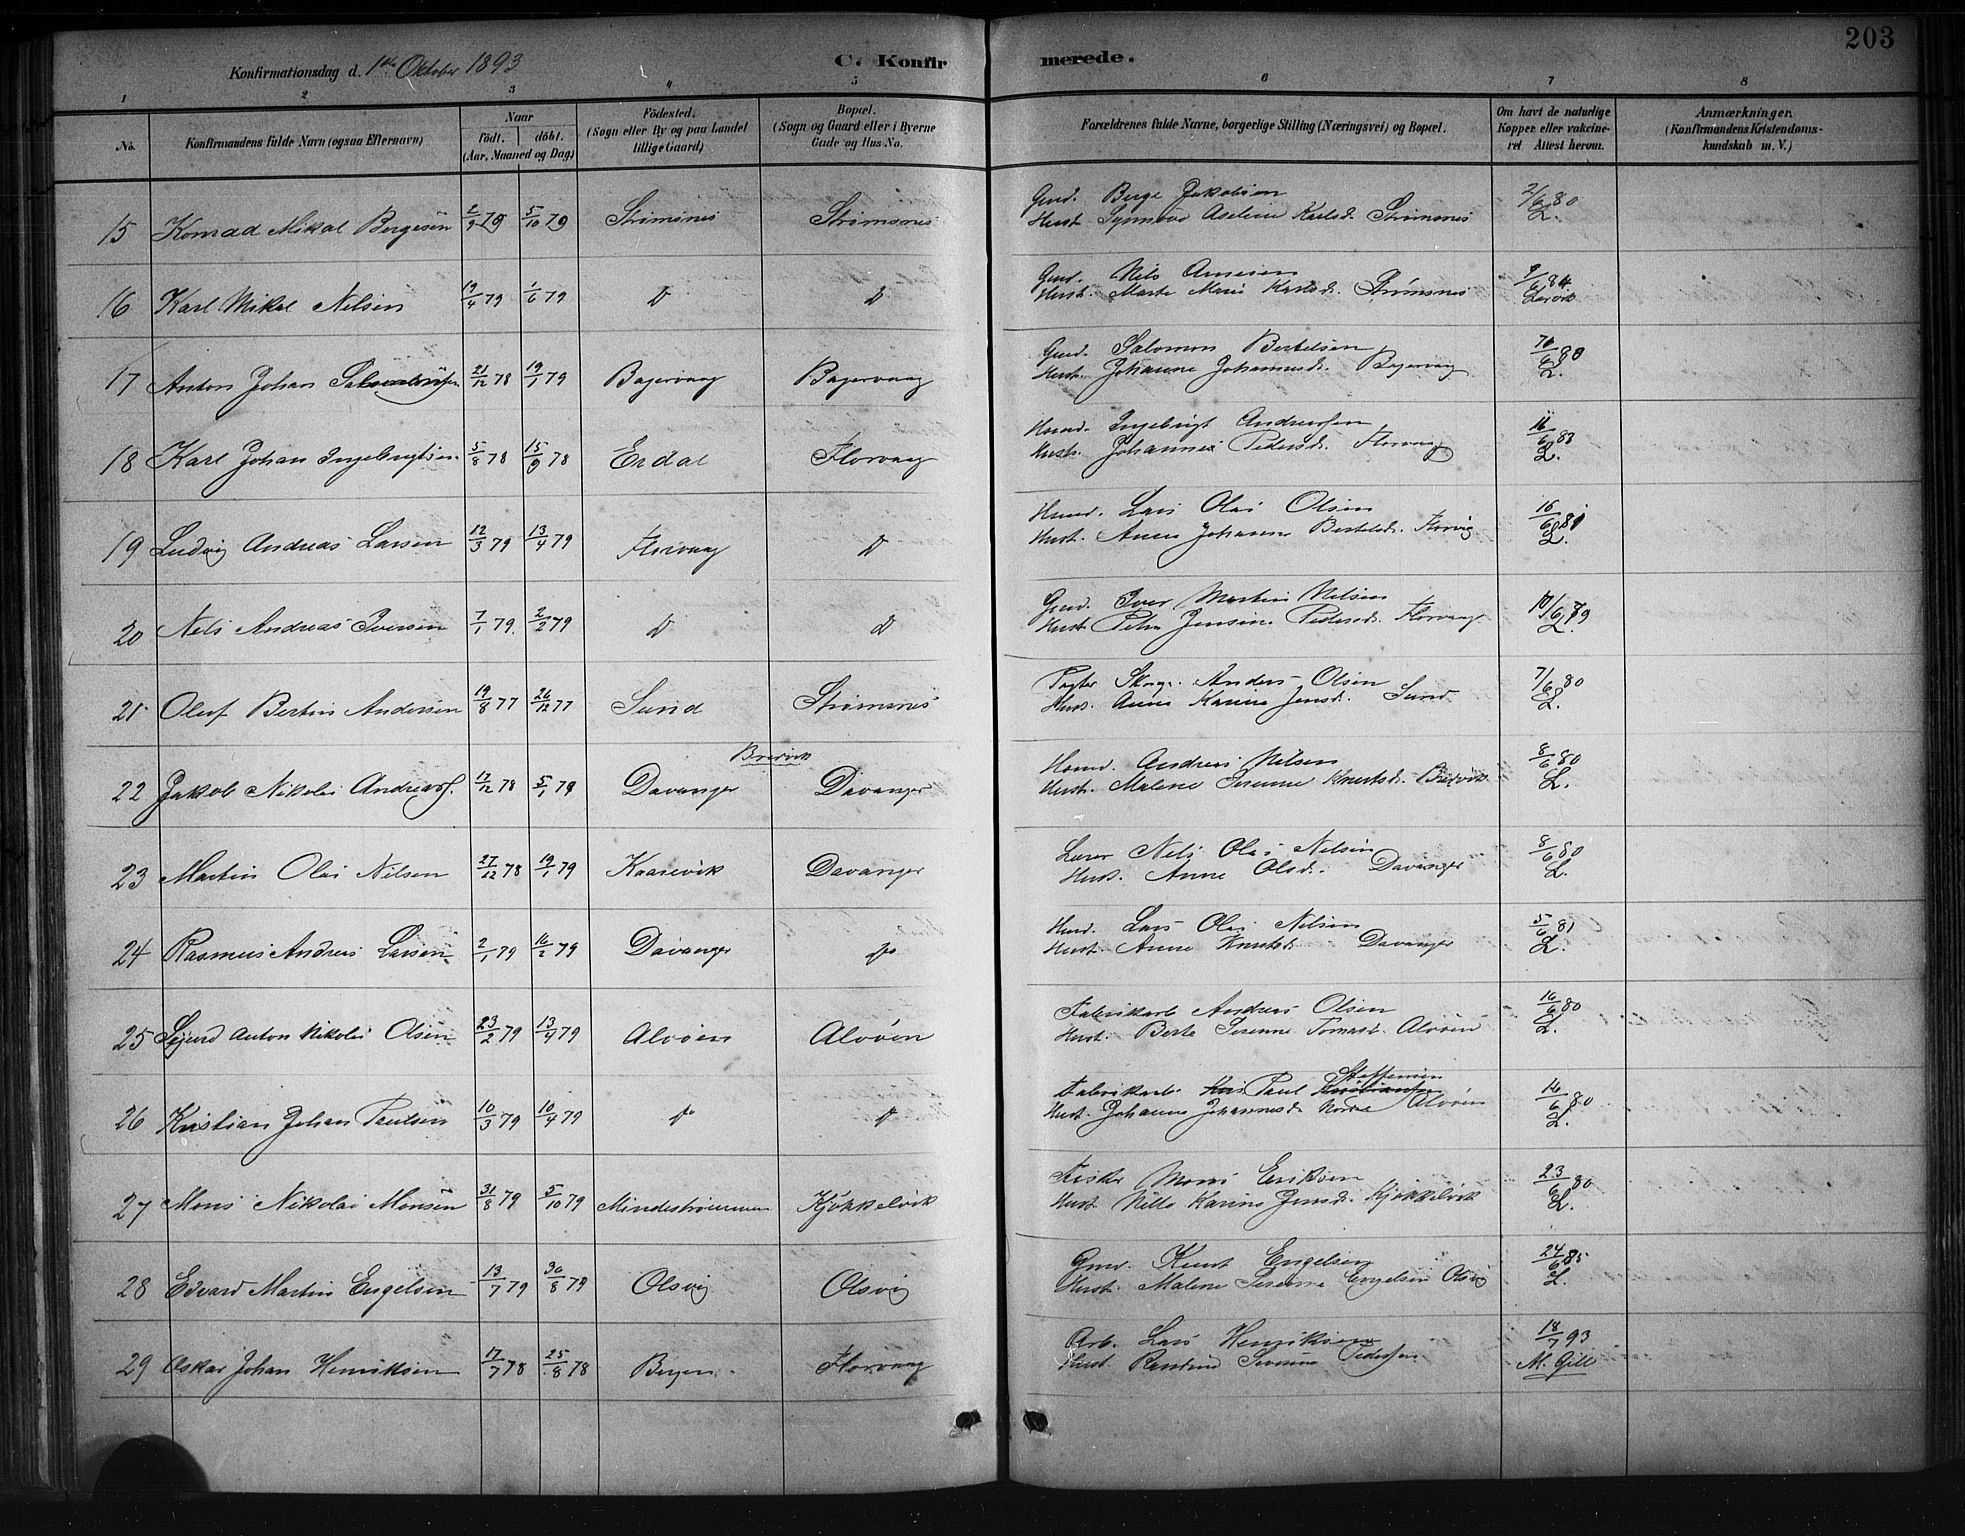 203
Konfirmationsdag d. 1ste Oktober 1893
C. Konfirmerede.
1 2 3 4 5 6 7 8
No.
Konfirmandens fulde Navn (ogsaa Efternavn)
Naar
födt. döbt.
(Aar, Maaned og Dag)
Födested.
(Sogn eller By og paa Landet
tillige Gaard)
Bopæl.
(Sogn og Gaard eller i Byerne
Gade og Hus-No.
Forældrenes fulde Navne, borgerlige Stilling (Næringsvei) og Bopæl.
Om havt de naturlige
Kopper eller vakcine-
ret. Attest herom.
Anmærkninger.
(Konfirmandens Kristendoms-
kundskab m. V.)
15 Konrad Mikal Bergesen 2/9 79 5/10 79 Strømsnes Strømsnes
Gmd. Berge Jakobsen
Hust. Synnøve Aseline Karlsd. Strømsnes
2/6 80
L.
16 Karl Mikal Nilsen 19/4 79 1/6 79 D D
Gmd. Nils Arnesen
Hust. Marte Marie Karlsd. Strømsnes
9/6 84
17 Anton Johan 21/12 78 19/1 79 Bagervaag Bagervaag
Gmd. Salomon Bertelsen
Hust. Johanne Johannesd. Bagervaag
/6 80
L.
18 Karl Johan Ingebrigtsen 5/8 78 15/9 78 Erdal Florvaag
Huusd. Ingebrigt Andersen
Hust. Johanne Pedersd. Florvaag
/6 83
L.
19 Ludvig Andreas Larsen 12/3 79 13/4 79 Florvaag D
Husmd. Lars Olai Olsen
Hust. Anne Johanne Bertelsd. Florvåg
16/6 81
L.
20 Nils Andreas Iversen 7/1 79 2/2 79 D D
Gmd. Iver Martin Nilsen
Hust. Petra Jensine Pedersd. Florvaag
10/6 79
L.
21 Oluf Bertin Andersen 19/8 77 26/12 77 Sund Strømsnes
Anders Olsen
Hust. Anne Karine Jensd. Sund
7/6 80
L.
22 Jakob Nikolai Andreass. 17/12 78 5/1 79 Davanger Bredvik Davanger
Andreas Nilsen
Hust. Malene Serene Knutsd. Bredvik
8/6 80
L.
23 Martin Olai Nilsen 27/12 78 19/1 79 Kaarevik Davanger
Lærer Nils Olai Nilsen
Hust. Anne Olsd. Davanger
8/6 80
L.
24 Rasmus Andreas Larsen 2/1 79 16/2 79 Davanger do
Husmd. Lars Olai Nilsen
Hust. Anne Knutsd. Davanger
5/6 81
L.
25 Sigurd Anton Nikolai Olsen 23/2 79 13/4 79 Alvøen Alvøen
Fabrikarb. Andreas Olsen
Hust. Berte Serene Tomasd. Alvøen
16/6 80
L.
26 Kristian Johan Paulsen 10/3 79 10/4 79 do D
Steffensen
Fabrikarb. Paul
Hust. Johanne Johannesd. Alvøen
14/6 80
L.
27 Mons Nikolai Monsen 31/8 79 5/10 79 Mindestrømmen Kjøkkelvik
Fisker Mons Eriksen
Hust. Karine Jensd. Kjøkkelvik
23/6 80
L.
28 Edvard Martin Engelsen 13/7 79 30/8 79 Olsvig Olsvig
Gmd. Knut Engelsen
Hust. Malene Serene Engelsen Olsvig
24/6 85
L.
29 Oskar Johan Henriksen 17/7 78 25/8 78 Bergen Florvaag
Arb. Lars Henriksen
Hust. Severine Pedersen
18/7 93
M. Gill